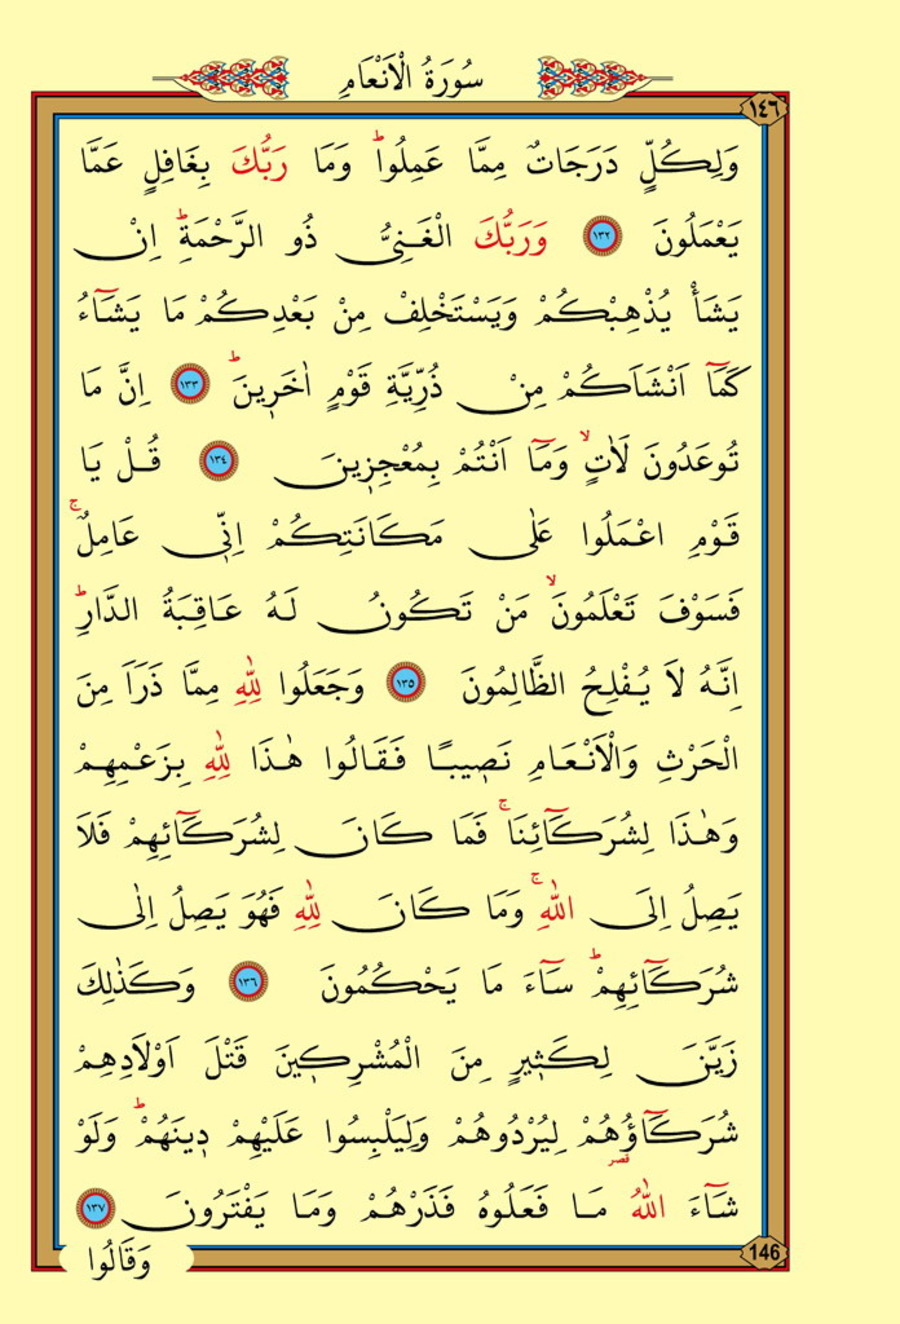 سُورَةُ الْاَنْعَامِ
١٤٦
وَلِكُلٍّ دَرَجَاتٌ مِمَّا عَمِلُواۜ وَمَا رَبُّكَ بِغَافِلٍ عَمَّا
يَعْمَلُونَ ﴿١٣٢﴾ وَرَبُّكَ الْغَنِيُّ ذُو الرَّحْمَةِۜ اِنْ
يَشَأْ يُذْهِبْكُمْ وَيَسْتَخْلِفْ مِنْ بَعْدِكُمْ مَا يَشَٓاءُ
كَمَٓا اَنْشَاَكُمْ مِنْ ذُرِّيَّةِ قَوْمٍ اٰخَر۪ينَۜ ﴿١٣٣﴾ اِنَّ مَا
تُوعَدُونَ لَاٰتٍۙ وَمَٓا اَنْتُمْ بِمُعْجِز۪ينَ ﴿١٣٤﴾ قُلْ يَا
قَوْمِ اعْمَلُوا عَلٰى مَكَانَتِكُمْ اِنّ۪ي عَامِلٌۚ
فَسَوْفَ تَعْلَمُونَۙ مَنْ تَكُونُ لَهُ عَاقِبَةُ الدَّارِۜ
اِنَّهُ لَا يُفْلِحُ الظَّالِمُونَ ﴿١٣٥﴾ وَجَعَلُوا لِلّٰهِ مِمَّا ذَرَاَ مِنَ
الْحَرْثِ وَالْاَنْعَامِ نَص۪يبًا فَقَالُوا هٰذَا لِلّٰهِ بِزَعْمِهِمْ
وَهٰذَا لِشُرَكَٓائِنَاۚ فَمَا كَانَ لِشُرَكَٓائِهِمْ فَلَا
يَصِلُ اِلَى اللّٰهِۚ وَمَا كَانَ لِلّٰهِ فَهُوَ يَصِلُ اِلٰى
شُرَكَٓائِهِمْۜ سَٓاءَ مَا يَحْكُمُونَ ﴿١٣٦﴾ وَكَذٰلِكَ
زَيَّنَ لِكَث۪يرٍ مِنَ الْمُشْرِك۪ينَ قَتْلَ اَوْلَادِهِمْ
شُرَكَٓاؤُ۬هُمْ لِيُرْدُوهُمْ وَلِيَلْبِسُوا عَلَيْهِمْ د۪ينَهُمْۜ وَلَوْ
قصر
شَٓاءَ اللّٰهُ مَا فَعَلُوهُ فَذَرْهُمْ وَمَا يَفْتَرُونَ ﴿١٣٧﴾
146
وَقَالُوا